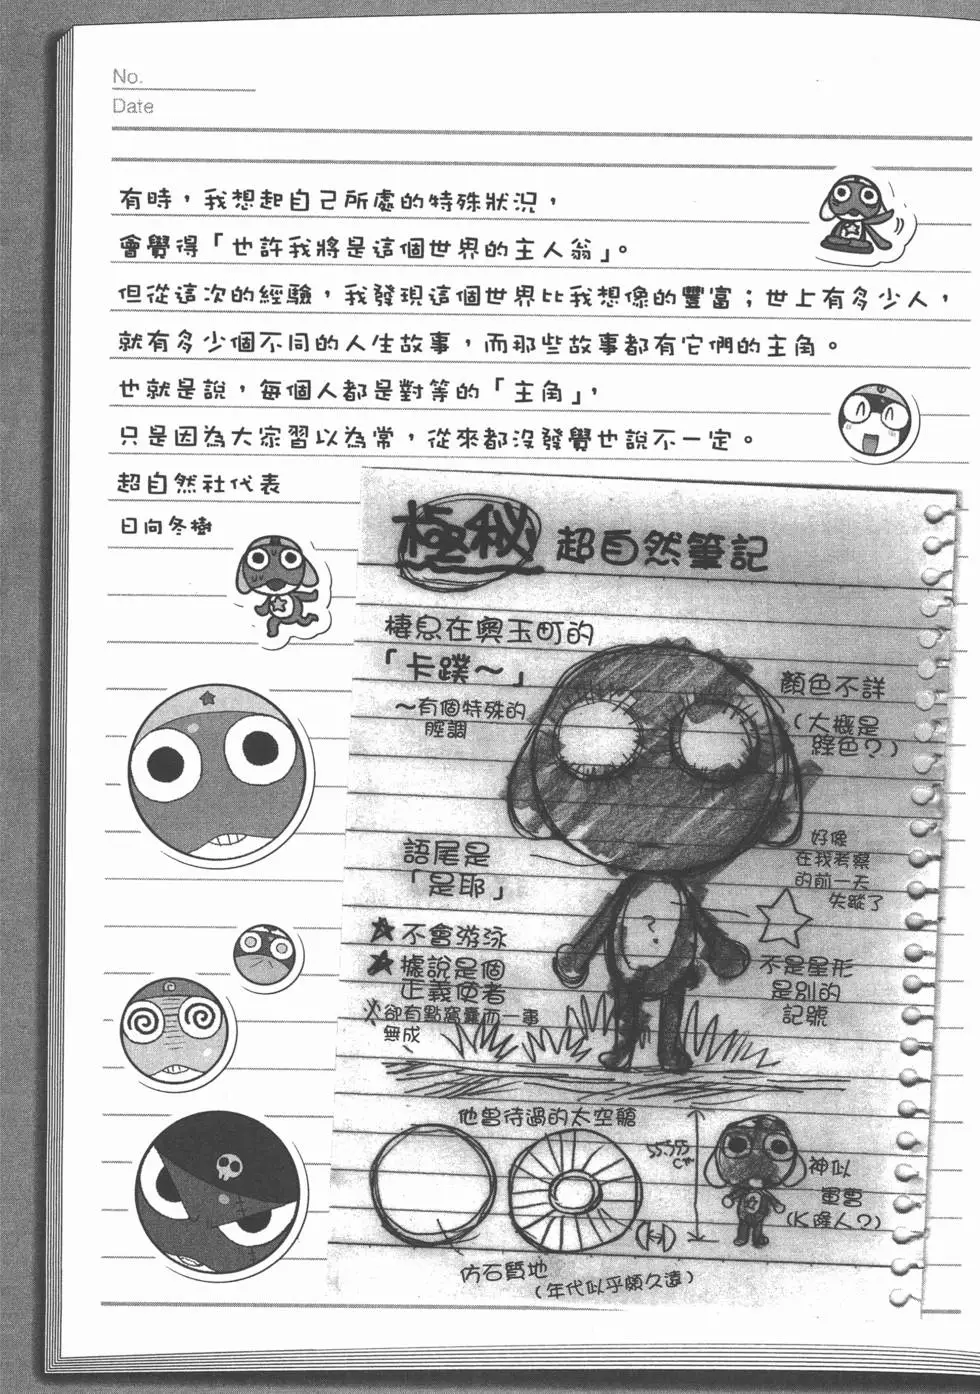 No.
Date
有時，我想起自己所處的特殊狀況，
會覺得「也許我將是這個世界的主人翁」。
但從這次的經驗，我發現這個世界比我想像的豐富；世上有多少人，
就有多少個不同的人生故事，而那些故事都有它們的主角。
也就是說，每個人都是對等的「主角」，
只是因為大家習以為常，從來都沒發覺也說不一定。
超自然社代表
日向冬樹
極秘 超自然筆記
棲息在奧玉町的
「卡蹼～」
～有個特殊的
腔調
顏色不詳
（大概是
綠色？）
語尾是
「是耶」
好像
在我考察
的前一天
失蹤了
☆不會游泳
☆據說是個
正義使者
※卻有點窩囊而一事
無成
?
不是星形
是別的
記號
他曾待過的太空艙
55.555
cm
神似
軍曹
（K隆人？）
仿石質地
（年代似乎頗久遠）